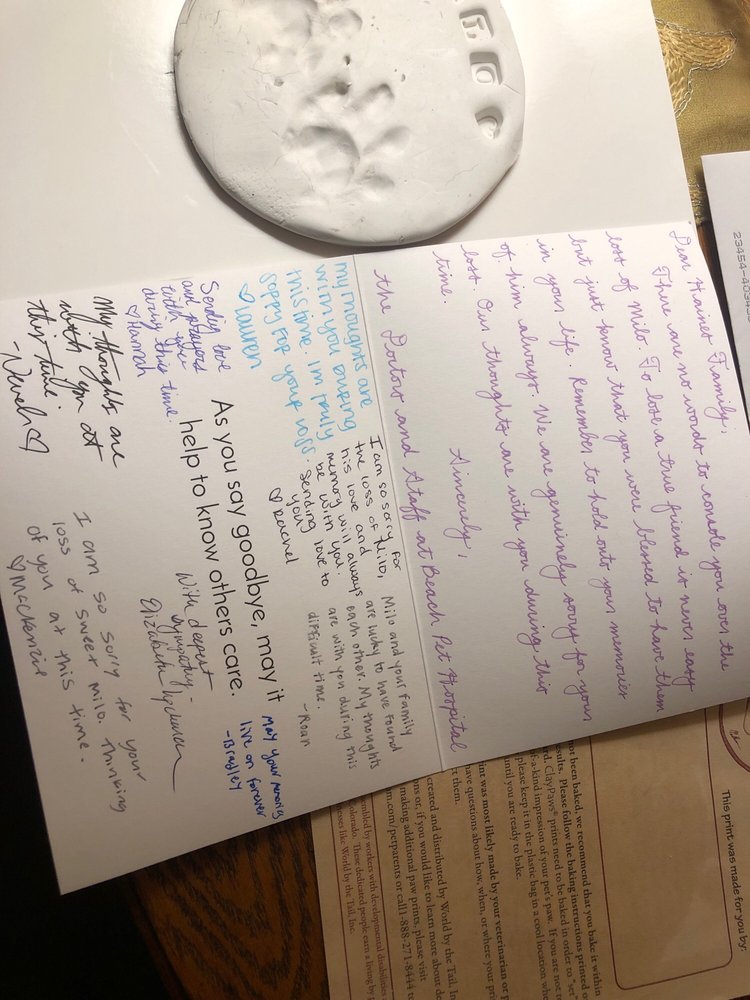 Dear Haines Family,
There are no words to console you over the
loss of Milo. To lose a true friend is never easy
but just know that you were blessed to have them
in your life. Remember to hold onto your memories
of him always. We are genuinely sorry for your
lost. Our thoughts are with you during this
time.
Sincerely,
the Doctors and Staff at Beach Pet Hospital
my thoughts are
with you during
this time. Im truly
sorry for your loss.
♡ Lauren
I am so sorry for
the loss of Milo,
his love and
memory will always
be with you.
Sending love to
you!
♡ Rachel
Milo and your family
are lucky to have found
each other. My thoughts
are with you during this
difficult time.
- Roan
Sending love
and prayers
with you
during this time.
♡ Hannah
As you say goodbye, may it
help to know others care.
May your memory
live on forever
- Bradley
With deepest
sympathy -
Elizabeth
My thoughts are
with you at
this time.
- Neveh ♡
I am so sorry for your
loss of sweet Milo. Thinking
of you at this time.
♡ Mackenzie
23454-4034
This print was made for you by:
not been baked, we recommend that you bake it within
results. Please follow the baking instructions printed
ClayPaws® prints need to be baked in order to "set"
of-a-kind impression of your pet's paw. If you are not
please keep it in the plastic bag in a cool location
until you are ready to bake.
print was most likely made by your veterinarian or
have questions about how, when, or where your
them.
created and distributed by World by the Tail, In
or, if you would like to learn more about
making additional paw prints, please visit
.com/petparents or call 1-888-271-8444
assembled by workers with developmental disabilities
Colorado. These dedicated people earn a living by
businesses like World by the Tail, Inc.